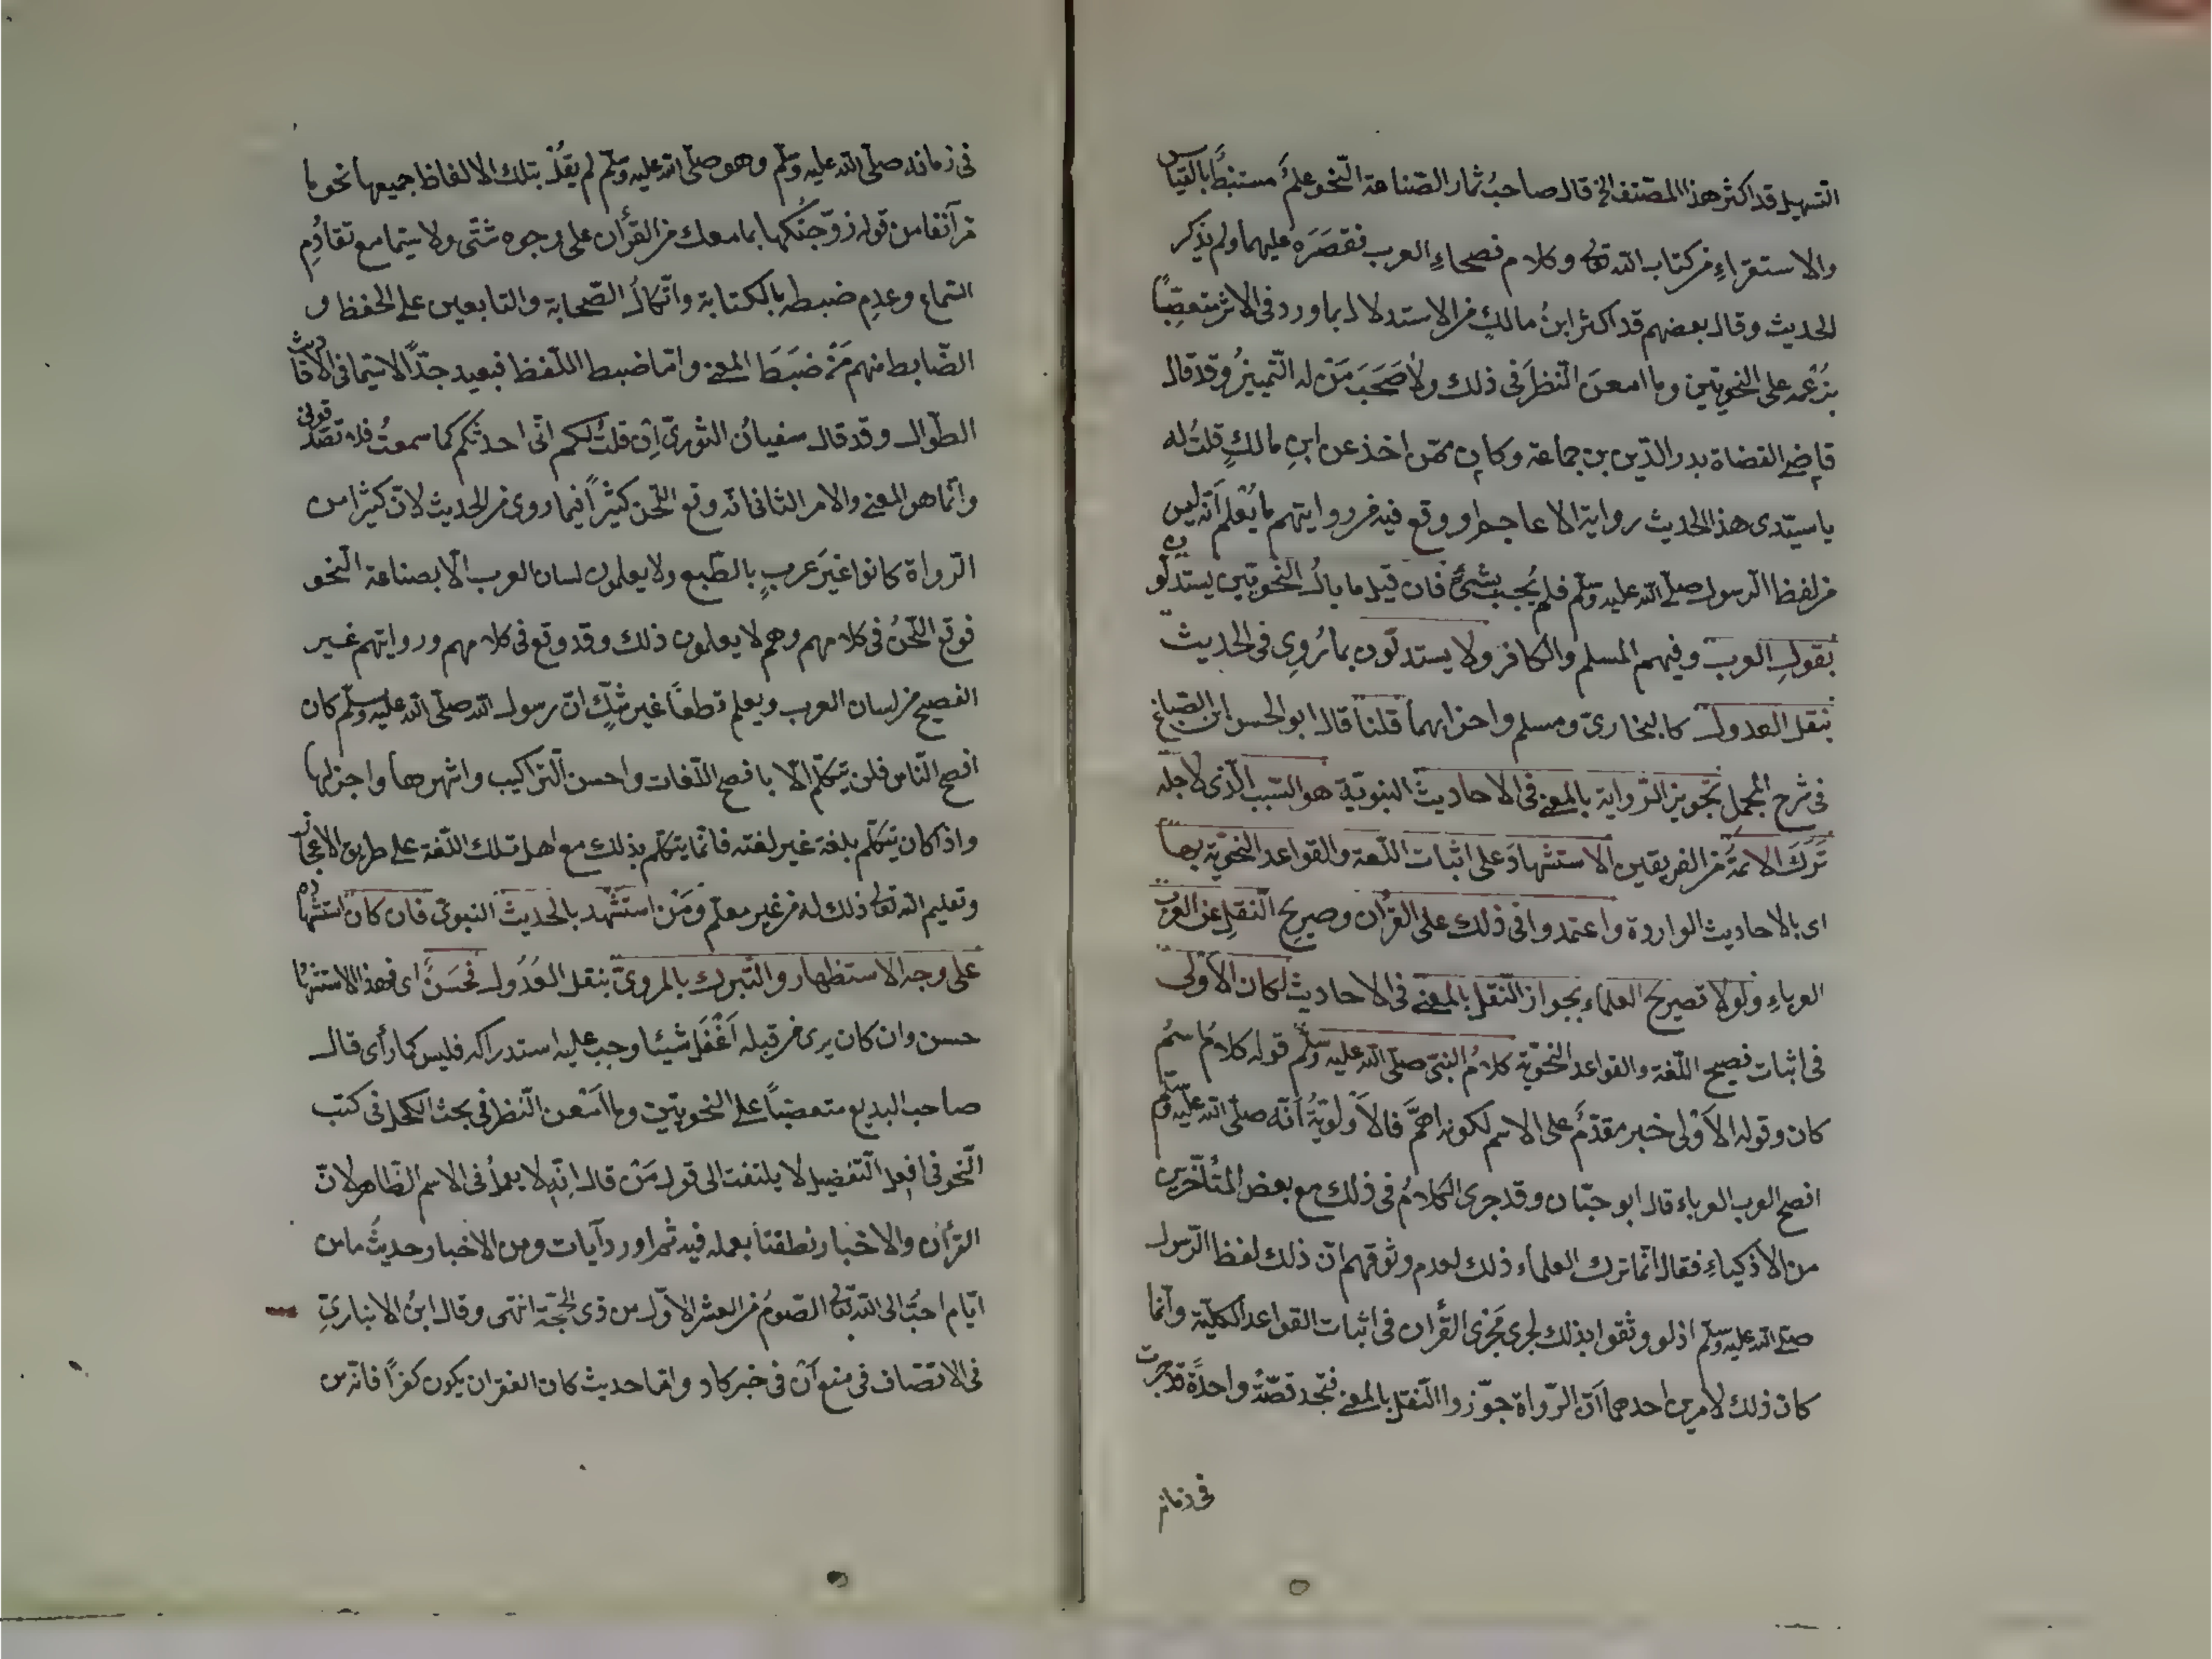 التسهيل قد اكثر هذا المصنف الخ قال صاحبُ ثمار الصّناعة النّحو علمٌ مستنبطٌ بالقياس
والاستقراءِ من كتاب الله تعالى وكلام فصحاءِ العرب فقصَرَه عليهما ولم يذكر
الحديث وقال بعضهم قد اكثر ابنُ مالكٍ من الاستدلال بما ورد في الاثر متعصّباً
بزعمه على النحويّين وما امعنَ النّظرَ في ذلك ولا صَحَبَ مَنْ له التّمييزُ وقد قال
قاضى القضاة بدر الدّين بن جماعة وكان ممّن اخذ عن ابنِ مالكٍ قلتُ له
يا سيّدى هذا الحديث رواية الاعاجم ووقع فيه من روايتهم ما يُعْلم أنّه ليس
من لفظ الرّسول صلّى الله عليه وسلّم فلم يُجِب بشئٍ فان قيل ما بالُ النّحويّين يستدلّون
بقولِ العرب وفيهم المسلم والكافر ولا يستدلّون بما رُوِى في الحديث
بنقل العدول كالبخارىّ ومسلم واحزابهما قلنا قال ابو الحسن ابن الصّايغ
في شرح الجمل تجويز الرّواية بالمعنى في الاحاديث النبويّة هو السّبب الّذى لاجله
تَرَكَ الائمّةُ من الفريقين الاستشهادَ على اثبات اللّغة والقواعد النحويّة بها
اى بالاحاديث الواردة واعتمدوا في ذلك على القرأن وصريح النّقلِ عن العرب
العرباءِ ولولا تصريح العلماء بجواز النّقل بالمعنى في الاحاديث لكان الاَوْلى
في اثبات فصيح اللّغة والقواعد النّحويّة كلامُ النبىّ صلّى الله عليه وسلّم قوله كلامُ اسمُ
كان وقوله الاَوْلى خبر مقدّمٌ على الاسم لكونه اهمَّ فالاَوْلويّةُ أنّه صلّى الله عليه وسلّم
افصح العرب العرباء قال ابو حيّان وقد جرى الكلامُ في ذلك مع بعض المتأخّرين
من الاذكياءِ فقال انّما ترك العلماء ذلك لعدم وثوقهم انّ ذلك لفظ الرّسول
صلّى الله عليه وسلّم اذ لو وثقوا بذلك لجرى مَجْرى القرأن في اثبات القواعد الكلّيّة وانّما
كان ذلك لامرين احدهما أنّ الرّواة جوّزوا النّقل بالمعنى فتجد قصّةً واحدةً قد جرت
في زمانه
في زمانه صلّى الله عليه وسلّم وهو صلّى الله عليه وسلّم لم يقُلْ بتلك الالفاظ جميعها نحو ما
مرّ آنفا من قوله زوّجتُكها بما معك من القرأن على وجوه شتّى ولا سيّما مع تقادُمِ
السّماع وعدمِ ضبطه بالكتابة واتّكالُ الصّحابة والتابعين على الحفظ و
الضّابط منهم مَنْ ضبَطَ المعنى وامّا ضبط اللّفظ فبعيد جدّاً لا سيّما في الاحاديث
الطّوال وقد قال سفيانُ الثورىّ اِنْ قلتُ لكم انّى احدثكم كما سمعتُ فلا تصدّقونى
وانّما هو المعنى والامر الثانى انّه وقع اللّحن كثيراً فيما روى من الحديث لانّ كثيرا من
الرّواة كانوا غيرَ عربٍ بالطّبع ولا يعلمون لسان العرب الّا بصناعة النّحو
فوقع اللّحنُ في كلامهم وهم لا يعلمون ذلك وقد وقع في كلامهم وروايتهم غير
الفصيح من لسان العرب ويعلم قطعاً غير شكٍّ انّ رسول الله صلّى الله عليه وسلّم كان
افصح النّاس فلن يتكلّم الّا بافصح اللّغات واحسن التراكيب واشهرها واجزلها
واذا كان يتكلّم بلغة غير لغته فانّما يتكلّم بذلك مع اهل تلك اللّغة على طريق الاعجاز
وتعليم الله تعالى ذلك له من غير معلّم ومَنْ استَشْهد بالحديث النبوىّ فان كان استشهاده
على وجه الاستظهار والتّبرك بالمروىّ بنقل العُدُول فحَسَنٌ اى فهذا الاستشهاد
حسن وان كان يرى من قبله اَغْفَلَ شيئا وجب عليه استدراكه فليس كما رأى قال
صاحب البديع متعصّباً على النحويّين وما اَمْعن النّظر في بحث الكحل في كتب
النّحو في افعل التّفضيل لا يلتفت الى قول مَنْ قال انّه لا يعملُ في الاسم الظّاهر لانّ
القرأن والاخبار نطقتا بعمله فيه ثم اورد آيات ومن الاخبار حديثُ ما من
ايّام احبَّ الى الله تعالى الصّومُ من العشر الاوّل من ذى الحجّة انتهى وقال ابنُ الانبارىّ
في الانصاف في منع أنْ في خبر كاد وامّا حديث كاد الفقر ان يكون كفراً فانّه من